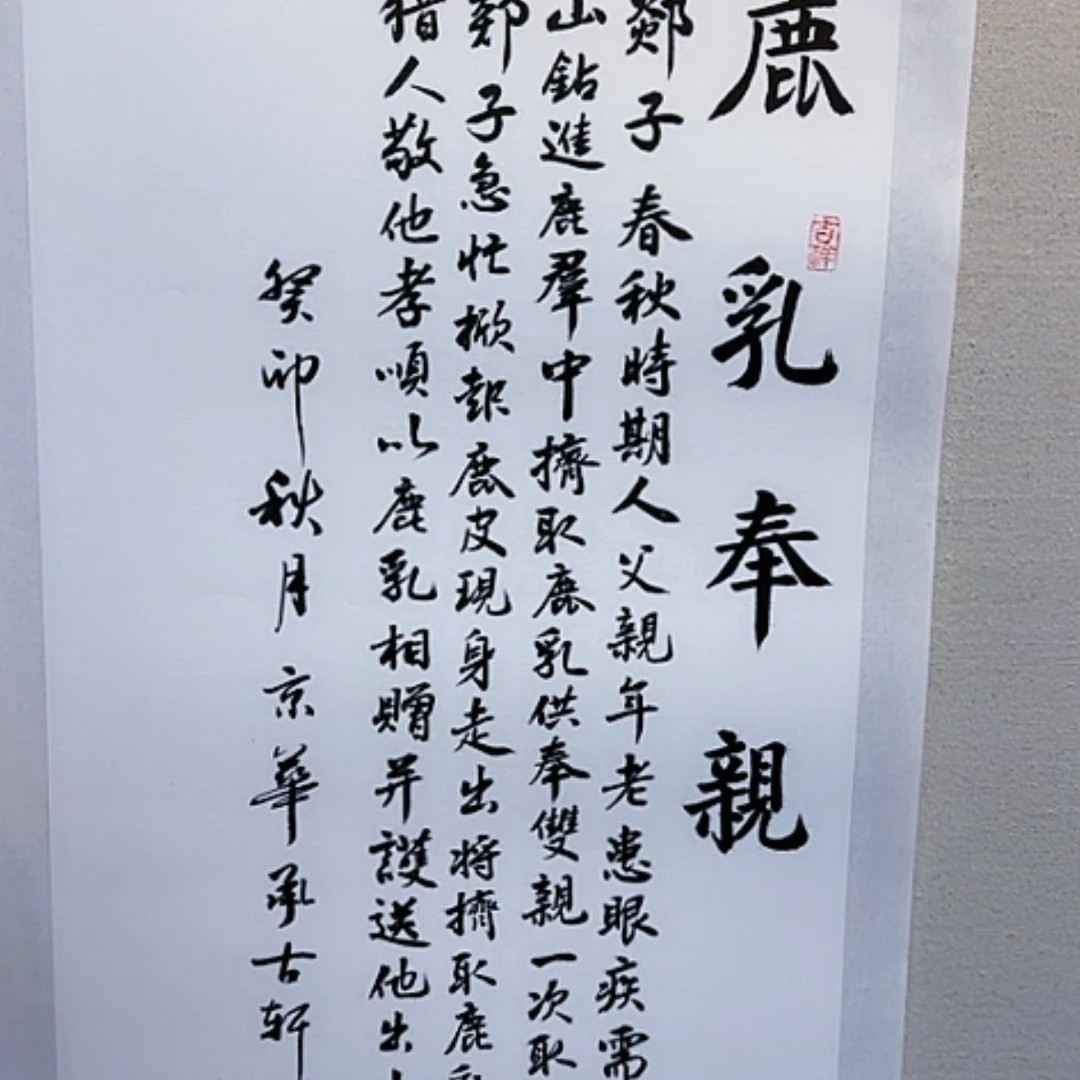 鹿乳奉親
吉祥
郯子春秋時期人父親年老患眼疾需
山鉆進鹿羣中擠取鹿乳供奉雙親一次取
郯子急忙掀起鹿皮現身走出將擠取鹿乳
猎人敬他孝順以鹿乳相贈并護送他出
癸卯秋月京華承古軒